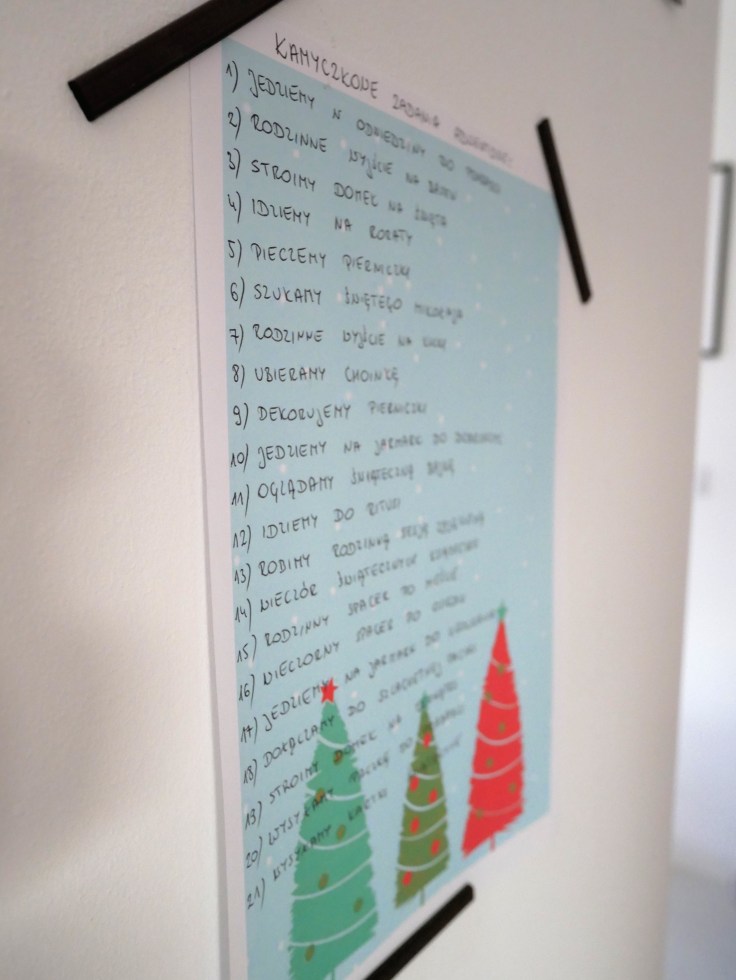 KAMYCZKOWE ZADANIA ADWENTOWE:
1) JEDZIEMY W ODWIEDZINY DO
2) RODZINNE WYJŚCIE NA
3) STROIMY DOMEK NA ŚWIĘTA
4) IDZIEMY NA RORATY
5) PIECZEMY PIERNICZKI
6) SZUKAMY ŚWIĘTEGO MIKOŁAJA
7) RODZINNE WYJŚCIE NA
8) UBIERAMY CHOINKĘ
9) DEKORUJEMY PIERNICZKI
10) JEDZIEMY NA JARMARK DO
11) OGLĄDAMY ŚWIĄTECZNĄ BAJKĘ
12) IDZIEMY DO
13) ROBIMY RODZINNĄ SESJĘ ZDJĘCIOWĄ
14) WIECZÓR ŚWIĄTECZNYCH
15) RODZINNY SPACER PO
16) WIECZORNY SPACER PO
17) JEDZIEMY NA JARMARK DO
18) DOŁĄCZAMY DO SZLACHETNEJ PACZKI
19) STROIMY DOMEK NA
20) WYSYŁAMY PACZKĘ DO
21) WYSYŁAMY KARTKI